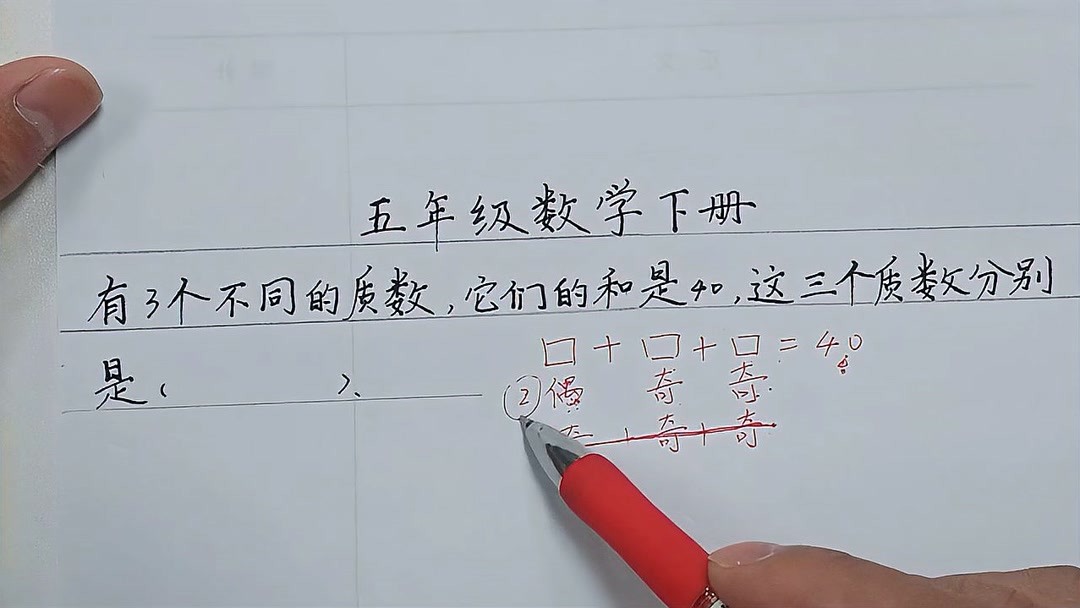 五年级数学下册
有3个不同的质数,它们的和是40,这三个质数分别
是( )、
□+□+□=40
② 偶 奇 奇
奇+奇+奇